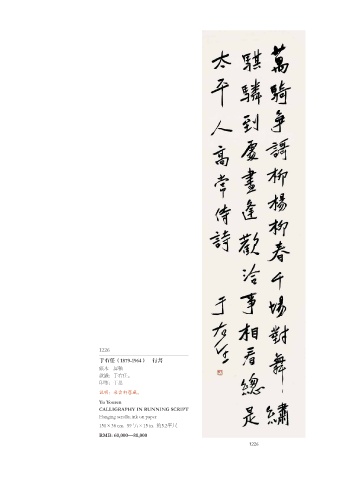 萬騎爭謌柳楊柳春千場對舞繡
騏驎到處盡逢歡洽事相看總是
太平人高常侍詩
于右任
1226
于右任(1879-1964) 行書
Yu Youren
CALLIGRAPHY IN RUNNING SCRIPT
Hanging scroll; ink on paper
RMB: 60,000—80,000
1226